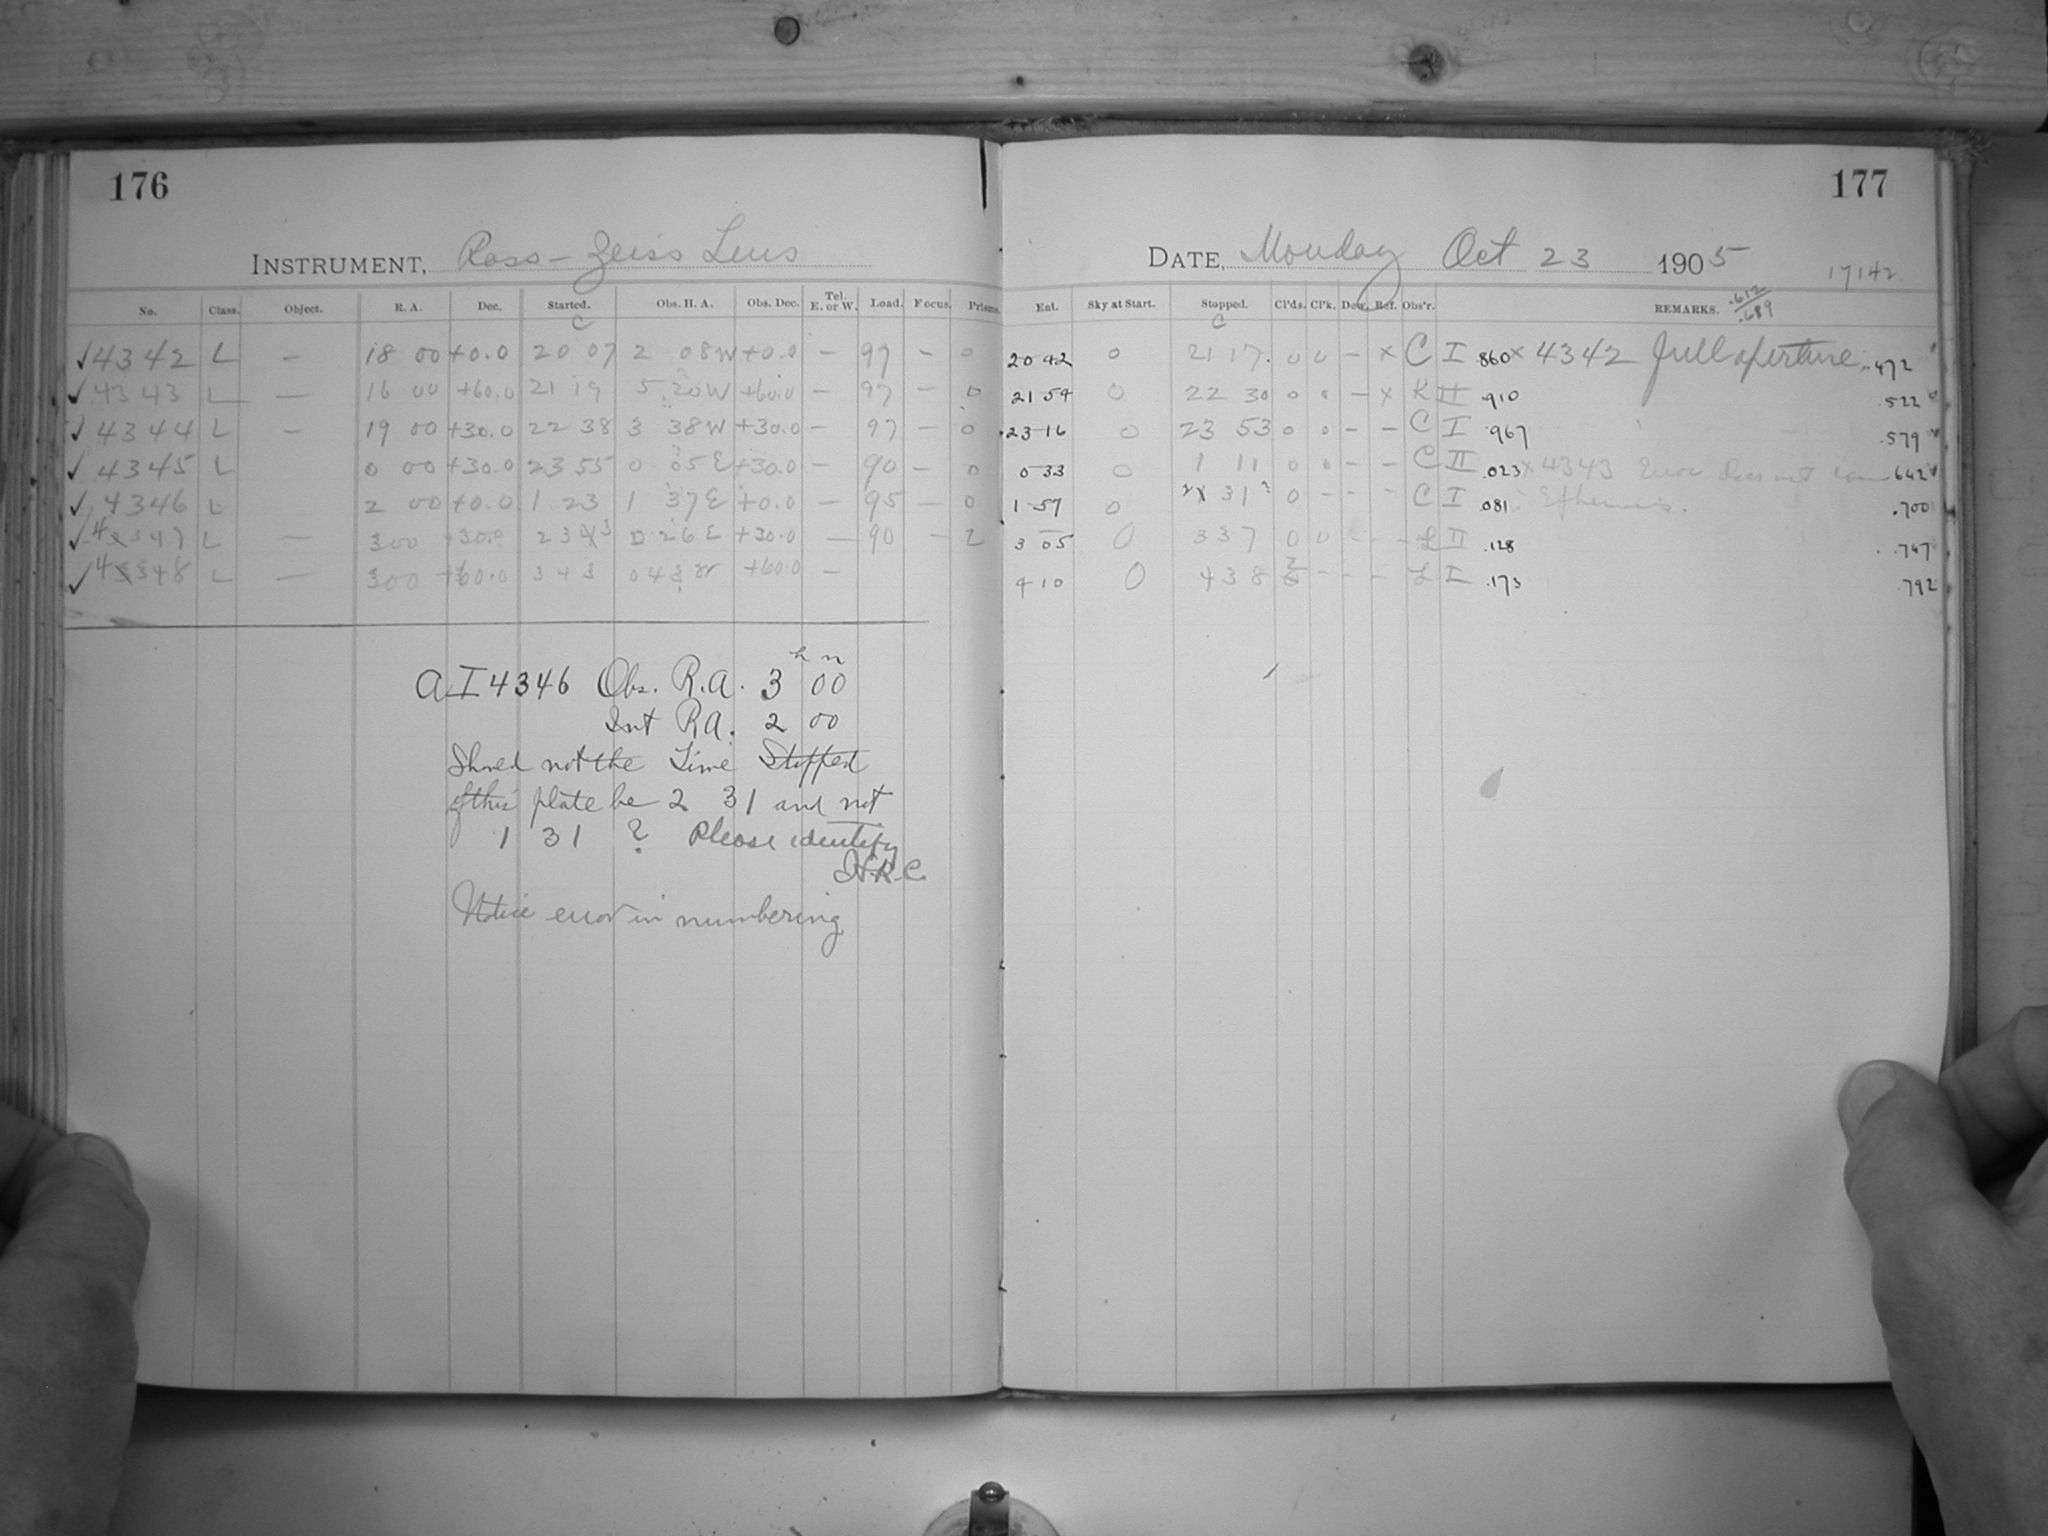 176
177
INSTRUMENT, Ross-Zeiss Lens
DATE, Monday Oct 23 1905
17142.
No. Class. Object. R. A. Dec. Started. Obs. H. A. Obs. Dec. Tel. E. or W. Load. Focus. Prisms. Ent. Sky at Start. Stopped. Cl'ds. Cl'k. Dew. Ref. Obs'r. REMARKS. .612 / .689
C C
✓4342 L — 18 00 +0.0 20 07 2 08W +0.0 — 97 - 0 20 42 0 21 17. 0 0 — x C I .860 x 4342 full aperture. .472
✓4343 L — 16 00 +60.0 21 19 5 20W +60.0 — 97 — 0 21 54 0 22 30 0 0 — x K II .910 .522
✓4344 L — 19 00 +30.0 22 38 3 38W +30.0 — 97 — 0 23 16 0 23 53 0 0 - - C I .967 .579
✓4345 L 0 00 +30.0 23 55 0 05E +30.0 — 90 — 0 0 33 0 1 11 0 0 - - C II .023 x 4343 Error does not .642
✓4346 L 2 00 +0.0 1 23 1 37E +0.0 — 95 — 0 1 57 0 2 31? 0 - - - C I .081 .700
✓4347 L — 3 00 +30.0 2 3 0 26E +30.0 — 90 — 2 3 05 0 3 37 0 0 - - L II .128 .747
✓4348 L — 3 00 +60.0 3 43 0 43W +60.0 — 4 10 0 4 38 - - - L I .173 .792
A I 4346 Obs. R.A. 3 h 00 m
Int R.A. 2 00
Should not the Time Stopped
of this plate be 2 31 and not
1 31 ? Please identify
Notice error in numbering